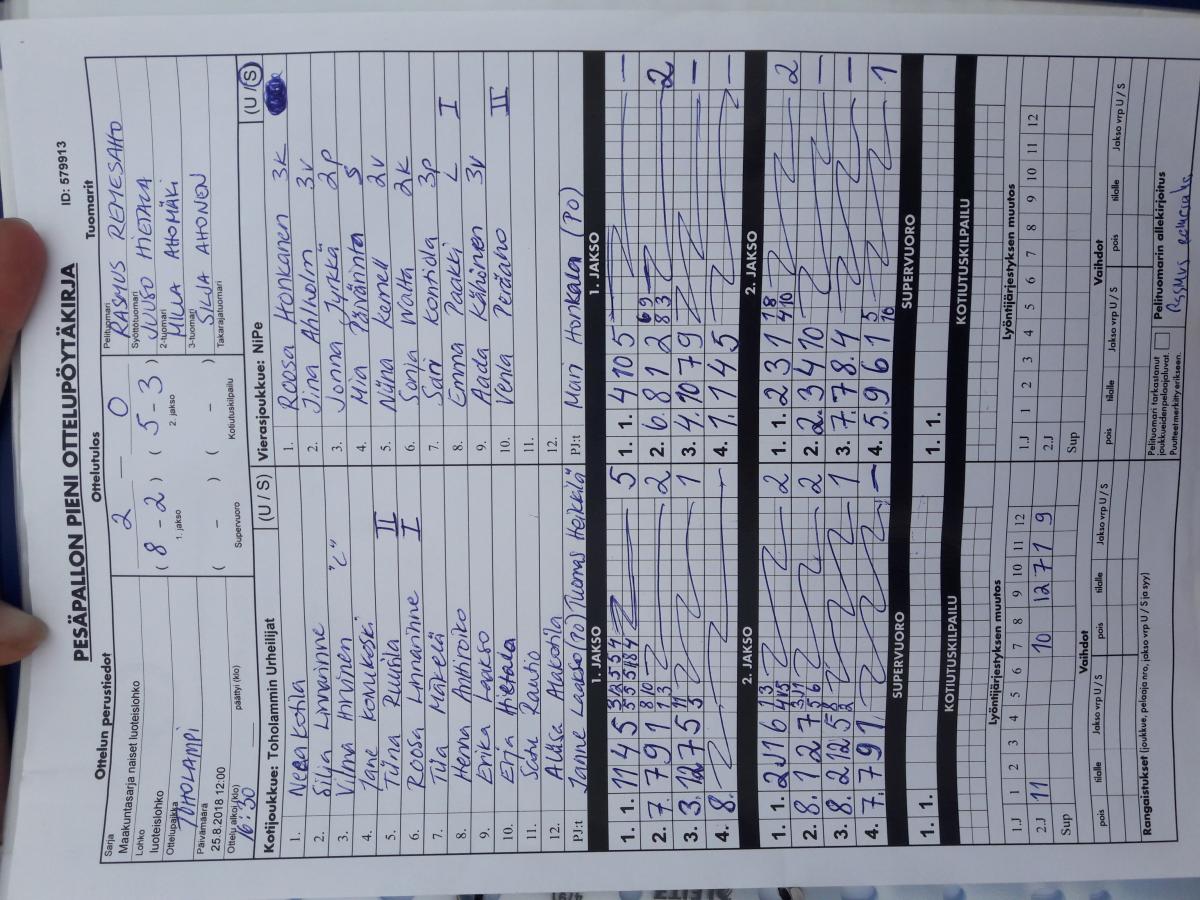 PESÄPALLON PIENI OTTELUPÖYTÄKIRJA
ID: 579913
Ottelun perustiedot
Sarja
Maakuntasarja naiset luoteislohko
Lohko
luoteislohko
Ottelupaikka
TOHOLAMPI
Päivämäärä
25.8.2018 12:00
Ottelu alkoi (klo)
16:30
päättyi (klo)
Ottelutulos
2 – 0
( 8 - 2 ) ( 5 - 3 )
1. jakso 2. jakso
( – ) ( – )
Supervuoro Kotiutuskilpailu
Tuomarit
Pelituomari
RASMUS REMESAHO
Syöttötuomari
JUUSO HIETALA
2-tuomari
MILLA AHOMÄKI
3-tuomari
SILJA AHONEN
Takarajatuomari
Kotijoukkue: Toholammin Urheilijat (U / S)
1. Neea Kotila
2. Silja Linnarinne
3. Vilma Hirvinen "C"
4. Jane Konukoski
5. Tiina Ruuhila II
6. Roosa Linnarinne I
7. Tiia Mäkelä
8. Henna Anttiroiko
9. Erika Laakso
10. Erja Hietala
11. Satu Rautio
12. Alukka Alakotila
PJ:t Janne Laakso (PO) Tuomas Heikkilä
Vierasjoukkue: NiPe (U / S)
1. Roosa Honkanen 3K
2. Jina Ahlholm 3v
3. Jonna Jyrkkä 2P
4. Mia Järviranta S
5. Niina Kemell 2v
6. Sonja Watta 2K
7. Sari Kontiola 3P
8. Emma Paakki L I
9. Aada Kähönen 3v
10. Venla Peräaho II
11.
12.
PJ:t Mari Honkala (PO)
1. JAKSO
1. 1. 11 4 5 5
2. 7. 7 9 1 2
3. 3. 12 7 5 1
4. 8. –
2. JAKSO
1. 1. 2 11 6 2
2. 8. 1 2 7 2
3. 8. 2 12 5 1
4. 7. 7 9 1 –
SUPERVUORO
1. 1.
KOTIUTUSKILPAILU
1. JAKSO
1. 1. 4 10 5 –
2. 6. 8 1 2 2
3. 4. 10 7 9 –
4. 1. 1 4 5 –
2. JAKSO
1. 1. 2 3 1 2
2. 2. 3 4 10 –
3. 7. 7 8 4 –
4. 5. 9 6 1 1
SUPERVUORO
1. 1.
KOTIUTUSKILPAILU
Lyöntijärjestyksen muutos
1 2 3 4 5 6 7 8 9 10 11 12
1.J
2.J 11 10 12 7 1 9
Sup
Vaihdot
pois tilalle Jakso vrp U / S pois tilalle Jakso vrp U / S
Lyöntijärjestyksen muutos
1 2 3 4 5 6 7 8 9 10 11 12
1.J
2.J
Sup
Vaihdot
pois tilalle Jakso vrp U / S pois tilalle Jakso vrp U / S
Rangaistukset (joukkue, pelaaja nro, jakso vrp U / S ja syy)
Pelituomari tarkastanut
joukkueidenpelaajaluvat.
Puutteet merkitty erikseen.
Pelituomarin allekirjoitus